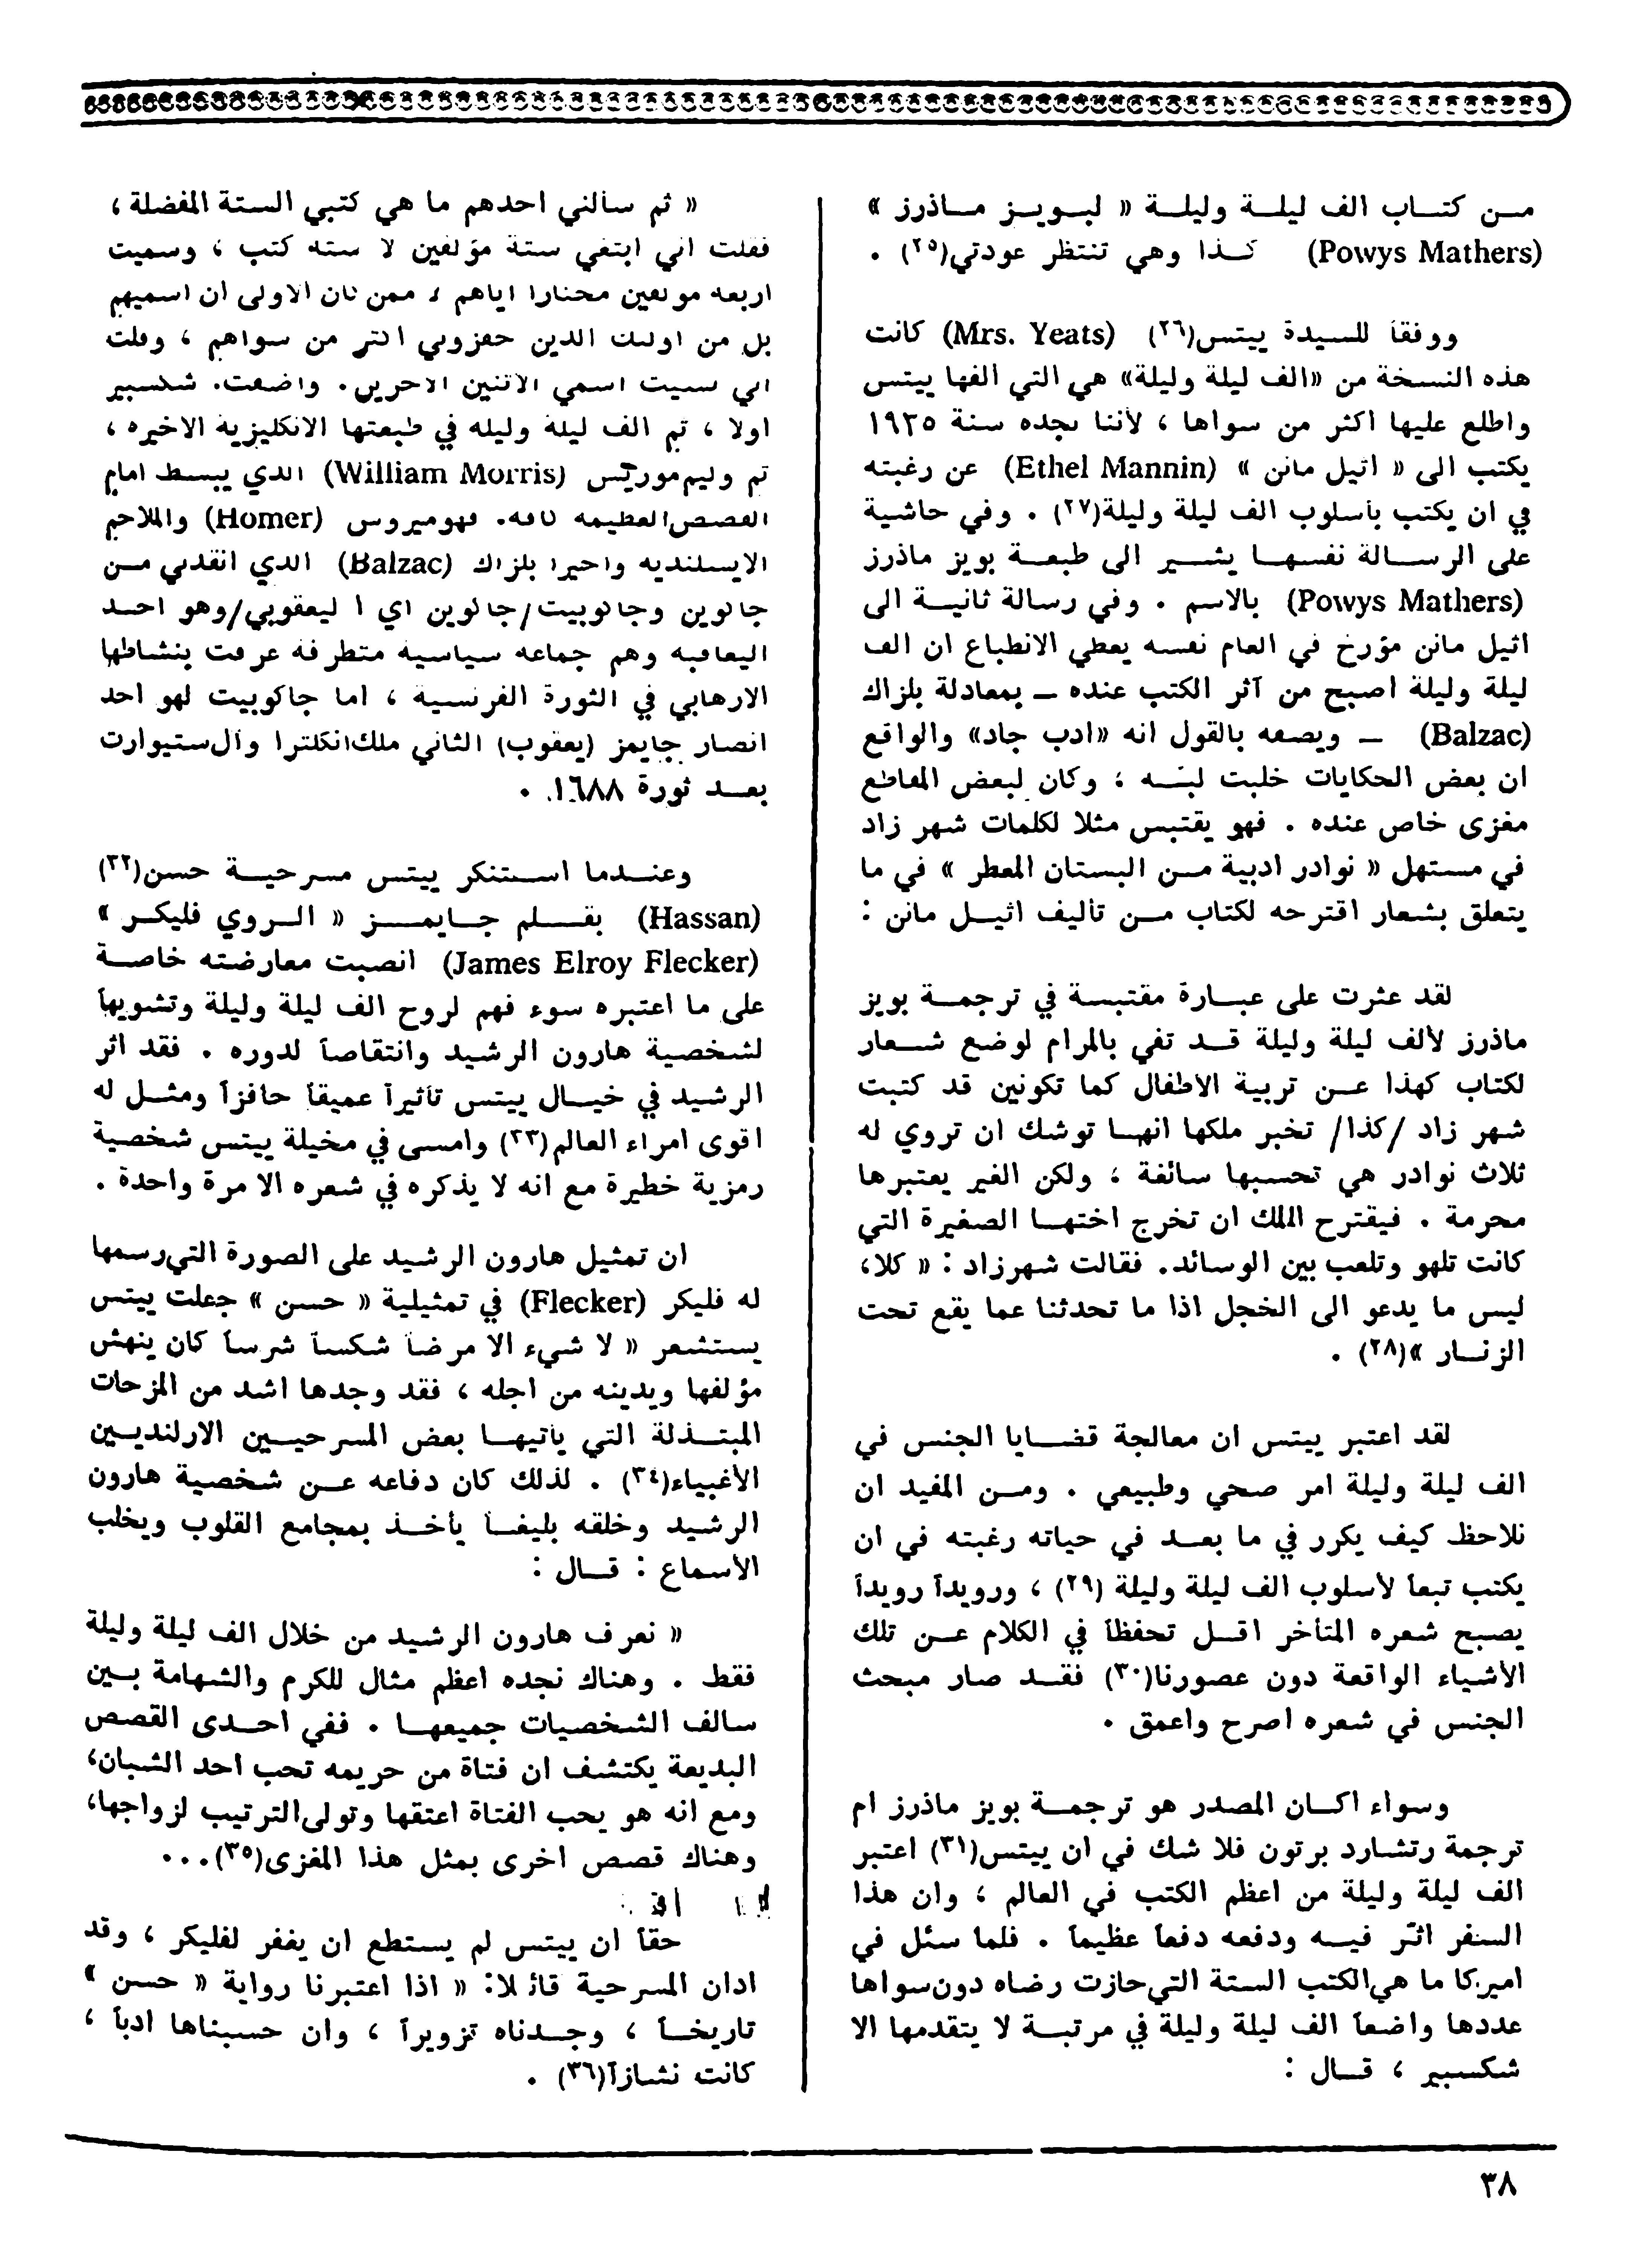 من كتاب الف ليلة وليلة « لبويز ماذرز »
(Powys Mathers) كذا وهي تنتظر عودتي(٢٥) .
ووفقاً للسيدة ييتس(٢٦) (Mrs. Yeats) كانت
هذه النسخة من «الف ليلة وليلة» هي التي الفها ييتس
واطلع عليها اكثر من سواها ، لأننا نجده سنة ١٩٣٥
يكتب الى « اثيل مانن » (Ethel Mannin) عن رغبته
في ان يكتب بأسلوب الف ليلة وليلة(٢٧) . وفي حاشية
على الرسالة نفسها يشير الى طبعة بويز ماذرز
(Powys Mathers) بالاسم . وفي رسالة ثانية الى
اثيل مانن مؤرخ في العام نفسه يعطي الانطباع ان الف
ليلة وليلة اصبح من آثر الكتب عنده ـ بمعادلة بلزاك
(Balzac) ـ ويصفه بالقول انه «ادب جاد» والواقع
ان بعض الحكايات خلبت لبّه ؛ وكان لبعض المقاطع
مغزى خاص عنده . فهو يقتبس مثلا لكلمات شهر زاد
في مستهل « نوادر ادبية من البستان المعطر » في ما
يتعلق بشعار اقترحه لكتاب من تأليف اثيل مانن :
لقد عثرت على عبارة مقتبسة في ترجمة بويز
ماذرز لألف ليلة وليلة قد تفي بالمرام لوضع شعار
لكتاب كهذا عن تربية الاطفال كما تكونين قد كتبت
شهر زاد /كذا/ تخبر ملكها انها توشك ان تروي له
ثلاث نوادر هي تحسبها سائغة ؛ ولكن الغير يعتبرها
محرمة . فيقترح الملك ان تخرج اختها الصغيرة التي
كانت تلهو وتلعب بين الوسائد. فقالت شهرزاد : « كلا،
ليس ما يدعو الى الخجل اذا ما تحدثنا عما يقع تحت
الزنار »(٢٨) .
لقد اعتبر ييتس ان معالجة قضايا الجنس في
الف ليلة وليلة امر صحي وطبيعي . ومن المفيد ان
نلاحظ كيف يكرر في ما بعد في حياته رغبته في ان
يكتب تبعاً لأسلوب الف ليلة وليلة (٢٩) ، ورويداً رويداً
يصبح شعره المتأخر اقل تحفظاً في الكلام عن تلك
الأشياء الواقعة دون عصورنا(٣٠) فقد صار مبحث
الجنس في شعره اصرح واعمق .
وسواء اكان المصدر هو ترجمة بويز ماذرز ام
ترجمة رتشارد برتون فلا شك في ان ييتس(٣١) اعتبر
الف ليلة وليلة من اعظم الكتب في العالم ؛ وان هذا
السفر اثّر فيه ودفعه دفعاً عظيماً . فلما سئل في
اميركا ما هي الكتب الستة التي حازت رضاه دون سواها
عددها واضعاً الف ليلة وليلة في مرتبة لا يتقدمها الا
شكسبير ، قال :
« ثم سألني احدهم ما هي كتبي الستة المفضلة ،
فقلت اني ابتغي ستة مؤلفين لا ستة كتب ، وسميت
اربعة مؤلفين مختارا اياهم لا ممن كان الاولى ان اسميهم
بل من اولئك الذين حفزوني اكثر من سواهم ، وقلت
اني نسيت اسمي الاثنين الاخرين. واضفت. شكسبير
اولا ، ثم الف ليلة وليلة في طبعتها الانكليزية الاخيرة ،
ثم وليم موريّس (William Morris) الذي يبسط امام
القصص العظيمة كافة. فهوميروس (Homer) والملاحم
الايسلندية واخيرا بلزاك (Balzac) الذي انقذني من
جاكوبن وجاكوبيت/جاكوبن اي ا ليعقوبي/وهو احد
اليعاقبة وهم جماعة سياسية متطرفة عرفت بنشاطها
الارهابي في الثورة الفرنسية ، اما جاكوبيت لهو احد
انصار جايمز (يعقوب) الثاني ملك انكلترا وآل ستيوارت
بعد ثورة ١٦٨٨ .
وعندما استنكر ييتس مسرحية حسن(٣٢)
(Hassan) بقلم جايمز « الروي فليكر »
(James Elroy Flecker) انصبت معارضته خاصة
على ما اعتبره سوء فهم لروح الف ليلة وليلة وتشويهاً
لشخصية هارون الرشيد وانتقاصاً لدوره . فقد اثر
الرشيد في خيال ييتس تأثيراً عميقاً حافزاً ومثل له
اقوى امراء العالم(٣٣) وامسى في مخيلة ييتس شخصية
رمزية خطيرة مع انه لا يذكره في شعره الا مرة واحدة .
ان تمثيل هارون الرشيد على الصورة التي رسمها
له فليكر (Flecker) في تمثيلية « حسن » جعلت ييتس
يستشعر « لا شيء الا مرضاً شكساً شرساً كان ينهش
مؤلفها ويدينه من اجله ، فقد وجدها اشد من المزحات
المبتذلة التي يأتيها بعض المسرحيين الارلنديين
الأغبياء(٣٤) . لذلك كان دفاعه عن شخصية هارون
الرشيد وخلقه بليغاً يأخذ بمجامع القلوب ويخلب
الأسماع : قال :
« نعرف هارون الرشيد من خلال الف ليلة وليلة
فقط . وهناك نجده اعظم مثال للكرم والشهامة بين
سالف الشخصيات جميعها . ففي احدى القصص
البديعة يكتشف ان فتاة من حريمه تحب احد الشبان،
ومع انه هو يحب الفتاة اعتقها وتولى الترتيب لزواجها،
وهناك قصص اخرى بمثل هذا المغزى(٣٥)...
حقاً ان ييتس لم يستطع ان يغفر لفليكر ، وقد
ادان المسرحية قائلا: « اذا اعتبرنا رواية « حسن »
تاريخاً ، وجدناه تزويراً ، وان حسبناها ادباً ،
كانت نشازاً(٣٦) .
٣٨